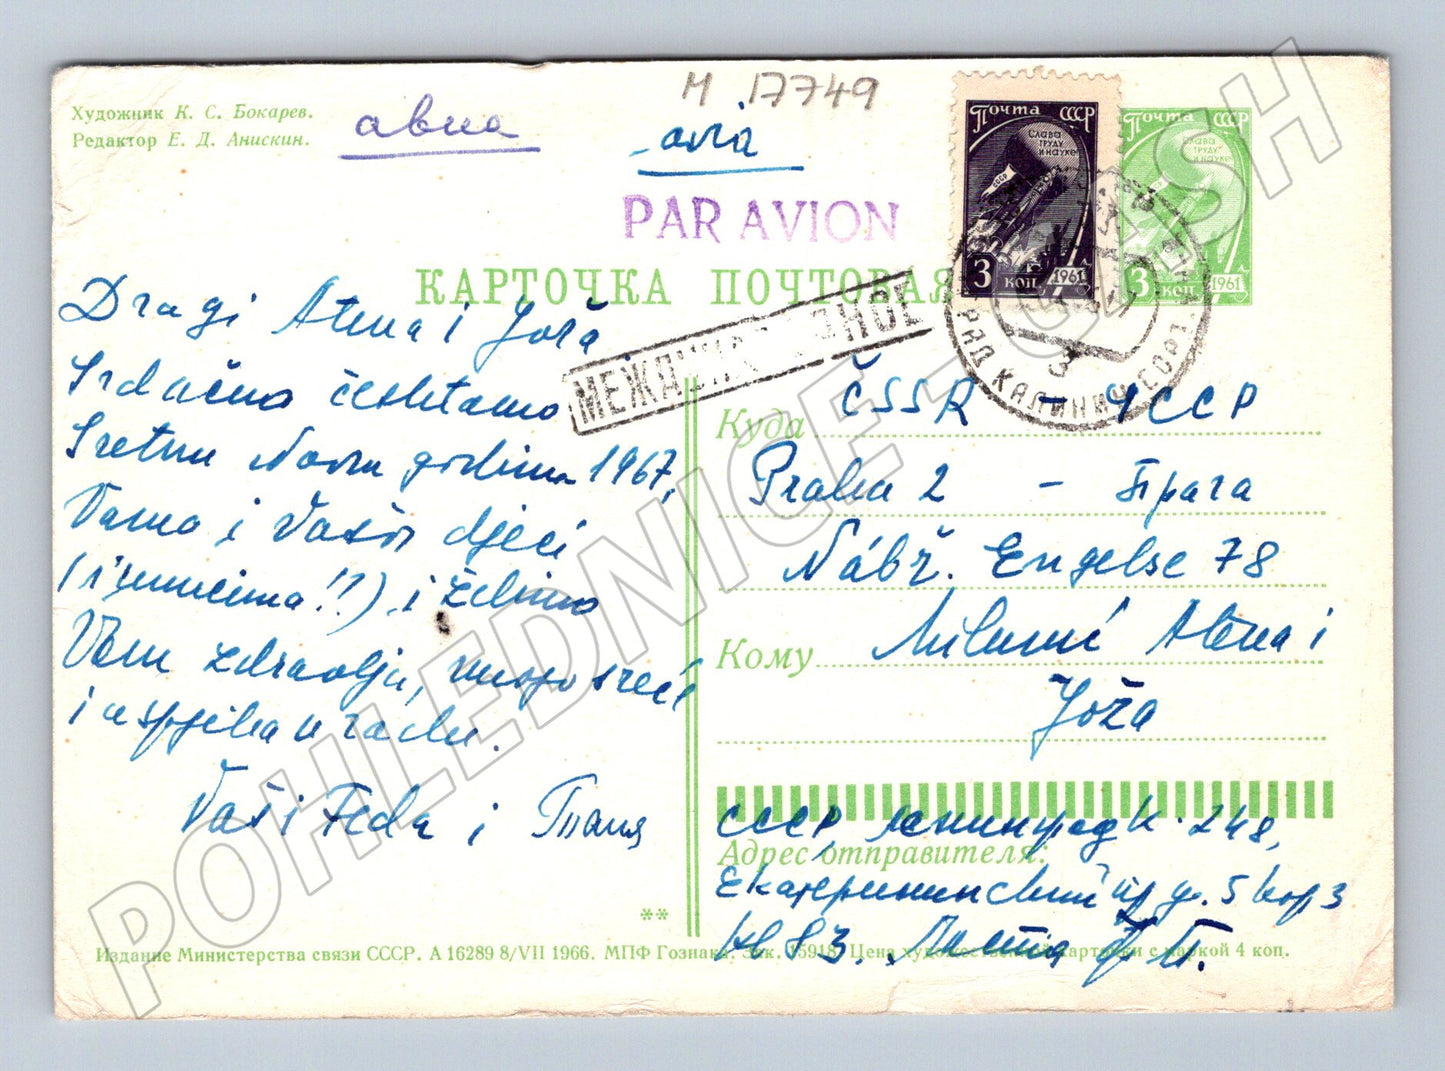 Художник К. С. Бокарев.
Редактор Е. Д. Анискин.
авиа
M 17749
avia
PAR AVION
КАРТОЧКА ПОЧТОВАЯ
МЕЖДУНАРОДНОЕ
ПОЧТА СССР
СЛАВА ТРУДУ И НАУКЕ!
СССР
3 КОП. 1961
ПОЧТА СССР
СЛАВА ТРУДУ И НАУКЕ!
3 КОП. 1961
Dragi Alena i Joža
Srdačno čestitamo
Sretnu Novu godinu 1967,
Vama i Vašoj djeci
(i unucima!!), i želimo
Vam zdravlja, mnogo sreće
i uspjeha u radu.
Vaši Feda i Таня
Куда ČSSR - ЧССР
Praha 2 - Прага
Nábř. Engelse 78
Кому Alena i
Joža
СССР, Ленинград К-248,
Адрес отправителя:
5 кор 3
кв 83.
**
Издание Министерства связи СССР. А 16289 8/VII 1966. МПФ Гознака. Зак. 15918. Цена художественной карточки с маркой 4 коп.
POHLEDNICE-CASH